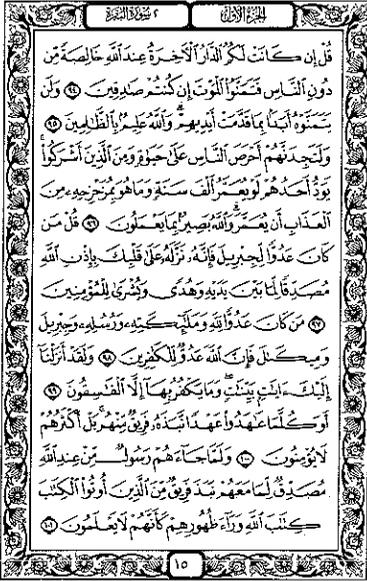 الجزء الأول
٢ سورة البقرة
قُلْ إِن كَانَتْ لَكُمُ الدَّارُ الْآخِرَةُ عِندَ اللَّهِ خَالِصَةً مِّن
دُونِ النَّاسِ فَتَمَنَّوُا الْمَوْتَ إِن كُنتُمْ صَادِقِينَ ٩٤ وَلَن
يَتَمَنَّوْهُ أَبَدًا بِمَا قَدَّمَتْ أَيْدِيهِمْ ۗ وَاللَّهُ عَلِيمٌ بِالظَّالِمِينَ ٩٥
وَلَتَجِدَنَّهُمْ أَحْرَصَ النَّاسِ عَلَىٰ حَيَوٰةٍ وَمِنَ الَّذِينَ أَشْرَكُوا ۚ
يَوَدُّ أَحَدُهُمْ لَوْ يُعَمَّرُ أَلْفَ سَنَةٍ وَمَا هُوَ بِمُزَحْزِحِهِ مِنَ
الْعَذَابِ أَن يُعَمَّرَ ۗ وَاللَّهُ بَصِيرٌ بِمَا يَعْمَلُونَ ٩٦ قُلْ مَن
كَانَ عَدُوًّا لِّجِبْرِيلَ فَإِنَّهُ نَزَّلَهُ عَلَىٰ قَلْبِكَ بِإِذْنِ اللَّهِ
مُصَدِّقًا لِّمَا بَيْنَ يَدَيْهِ وَهُدًى وَبُشْرَىٰ لِلْمُؤْمِنِينَ
٩٧ مَن كَانَ عَدُوًّا لِّلَّهِ وَمَلَٰٓئِكَتِهِ وَرُسُلِهِ وَجِبْرِيلَ
وَمِيكَىٰلَ فَإِنَّ اللَّهَ عَدُوٌّ لِّلْكَٰفِرِينَ ٩٨ وَلَقَدْ أَنزَلْنَا
إِلَيْكَ ءَايَٰتٍ بَيِّنَٰتٍ ۖ وَمَا يَكْفُرُ بِهَا إِلَّا الْفَٰسِقُونَ ٩٩
أَوَكُلَّمَا عَٰهَدُوا عَهْدًا نَّبَذَهُ فَرِيقٌ مِّنْهُم ۚ بَلْ أَكْثَرُهُمْ
لَا يُؤْمِنُونَ ١٠٠ وَلَمَّا جَاءَهُمْ رَسُولٌ مِّنْ عِندِ اللَّهِ
مُصَدِّقٌ لِّمَا مَعَهُمْ نَبَذَ فَرِيقٌ مِّنَ الَّذِينَ أُوتُوا الْكِتَٰبَ
كِتَٰبَ اللَّهِ وَرَاءَ ظُهُورِهِمْ كَأَنَّهُمْ لَا يَعْلَمُونَ ١٠١
١٥